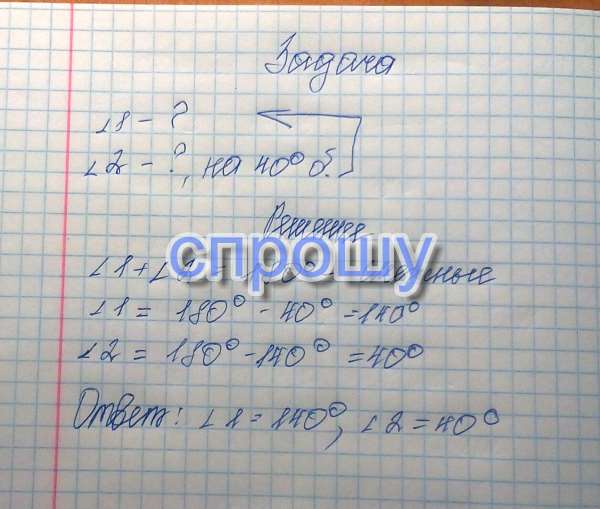 Задача
∠1 - ?
∠2 - ?, на 40° б.
Решение
спрошу
∠1 +
∠1 = 180° - 40° = 140°
∠2 = 180° - 140° = 40°
Ответ: ∠1 = 140°, ∠2 = 40°